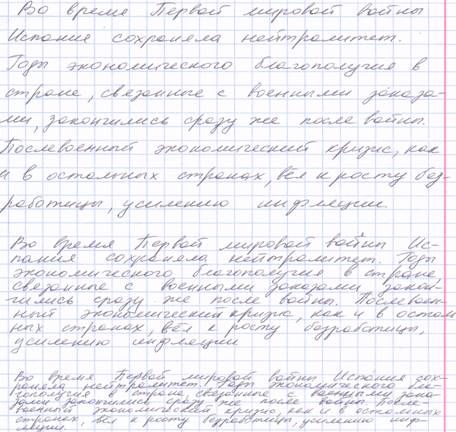 Во время Первой мировой войны
Испания сохраняла нейтралитет.
Годы экономического благополучия в
стране, связанные с военными заказа-
ми, закончились сразу же после войны.
Послевоенный экономический кризис, как
и в остальных странах, вёл к росту без-
работицы, усилению инфляции.
Во время Первой мировой войны Ис-
пания сохраняла нейтралитет. Годы
экономического благополучия в стране,
связанные с военными заказами закон-
чились сразу же после войны. Послевоен-
ный экономический кризис, как и в осталь
ных странах, вёл к росту безработицы,
усилению инфляции
Во время Первой мировой войны Испания сох-
раняла нейтралитет. Годы экономического бла-
гополучия в стране, связанные с военными зака-
зами закончились сразу же после войны. После-
военный экономический кризис, как и в остальных
странах, вёл к росту безработицы, усилению инф-
ляции.